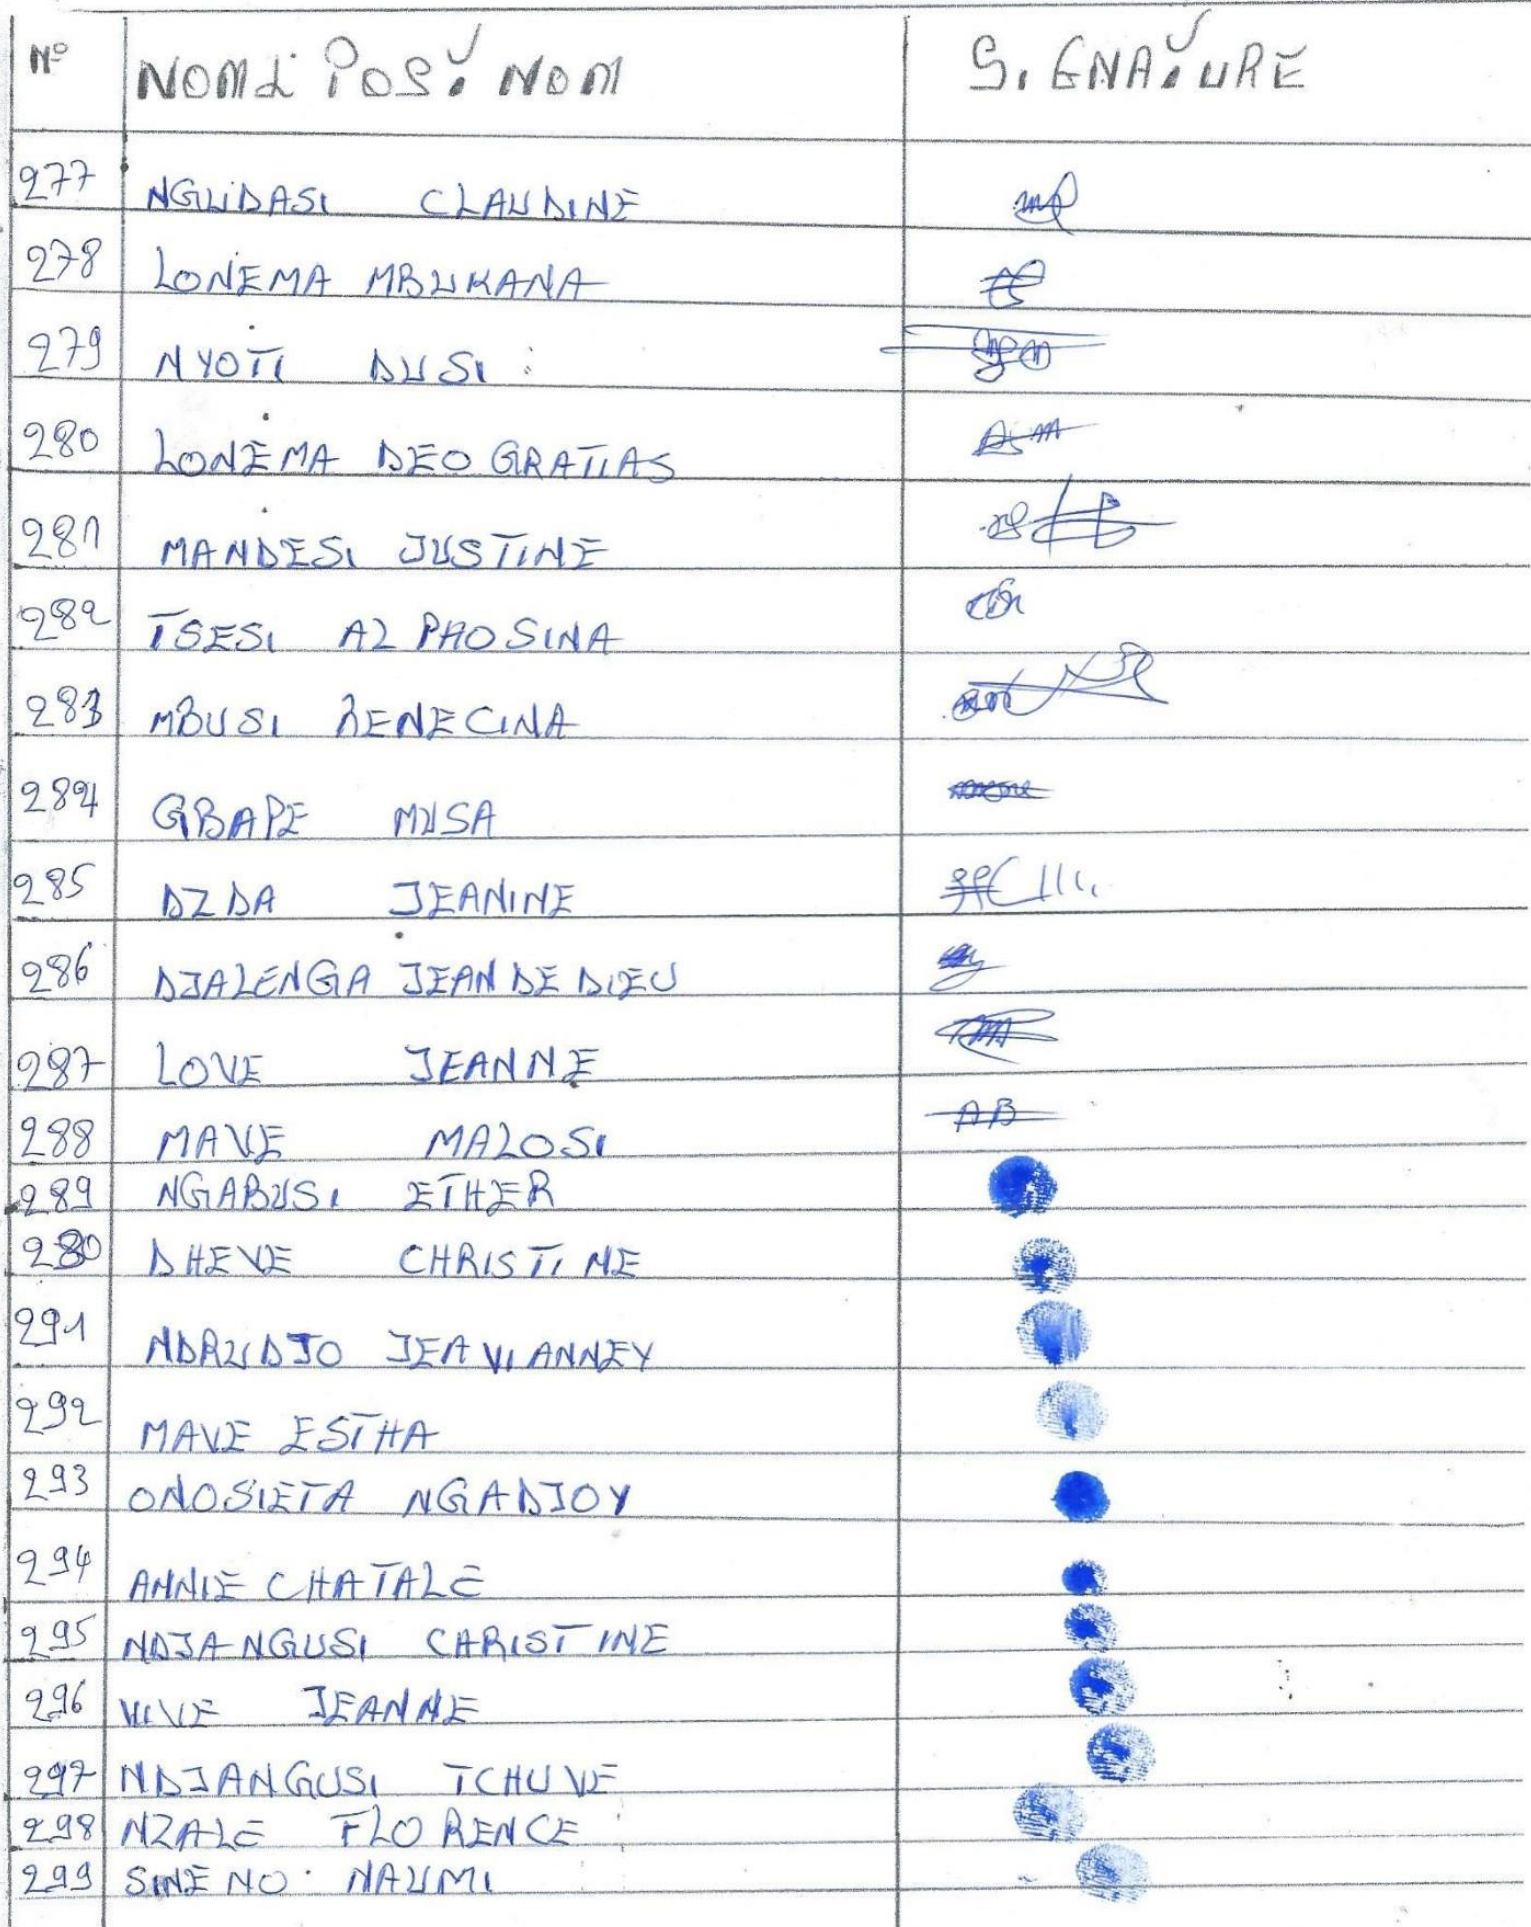 N° NOM & POST NOM SIGNATURE
277 NGUDASI CLAUDINE
278 LONEMA MBUKANA
279 NYOTI DUSI
280 LONEMA DEO GRATIAS
281 MANDESI JUSTINE
282 TSESI ALPHOSINA
283 MBUSI RENECINA
284 GBAPE MUSA
285 DZDA JEANINE
286 DJALENGA JEAN DE DIEU
287 LOVE JEANNE
288 MAVE MALOSI AB
289 NGABUSI ETHER
280 DHEVE CHRISTINE
291 NDRUDJO JEAVIANNEY
292 MAVE ESTHA
293 ONOSIETA NGADJOY
294 ANNIE CHATALE
295 NDJANGUSI CHRISTINE
296 VIVE JEANNE
297 NDJANGUSI TCHUVE
298 NZALE FLORENCE
299 SINENO NAUMI